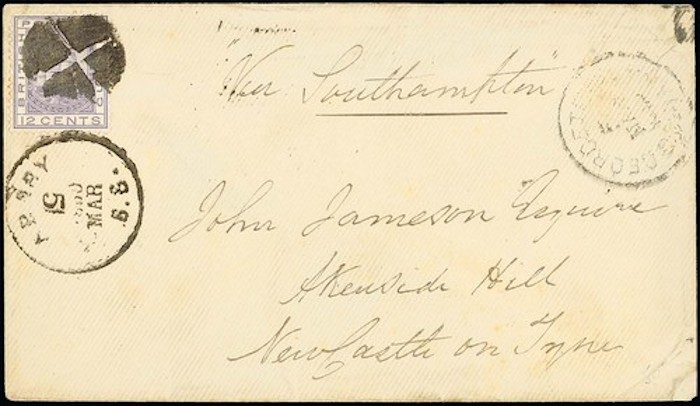 BRITISH
12 CENTS
"Via Southampton"
GEORGETO
MAR
51
John Jameson Esquire
Akenside Hill
NewCastle on Tyne